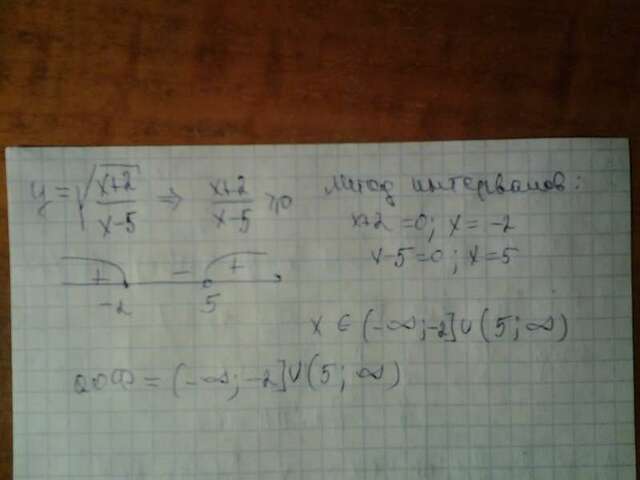 y = √(x+2 / x-5) ⇒ x+2 / x-5 ≥ 0 Метод интервалов:
x+2 = 0; x = -2
x-5 = 0; x = 5
+ - +
-2 5
x ∈ (-∞; -2] ∪ (5; ∞)
ООФ = (-∞; -2] ∪ (5; ∞)